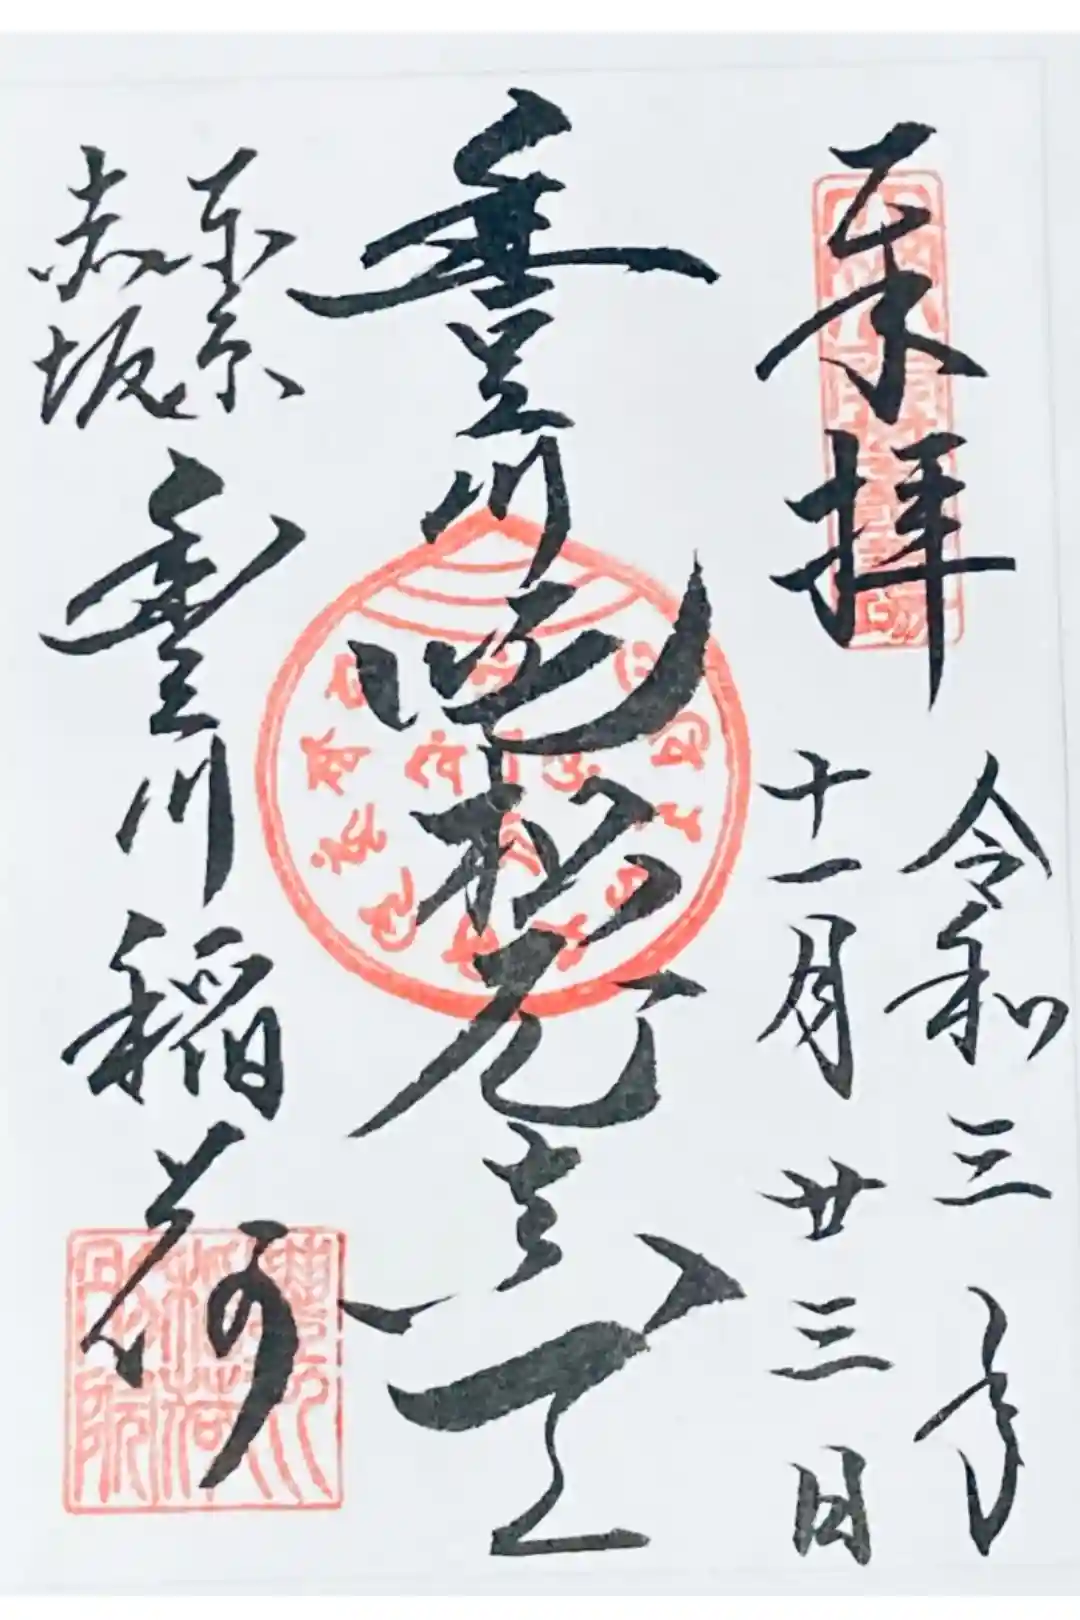 奉拝
令和三年
十一月廿三日
豊川吒枳尼真天
東京
赤坂
豊川稲荷
豊川
稲荷
別院